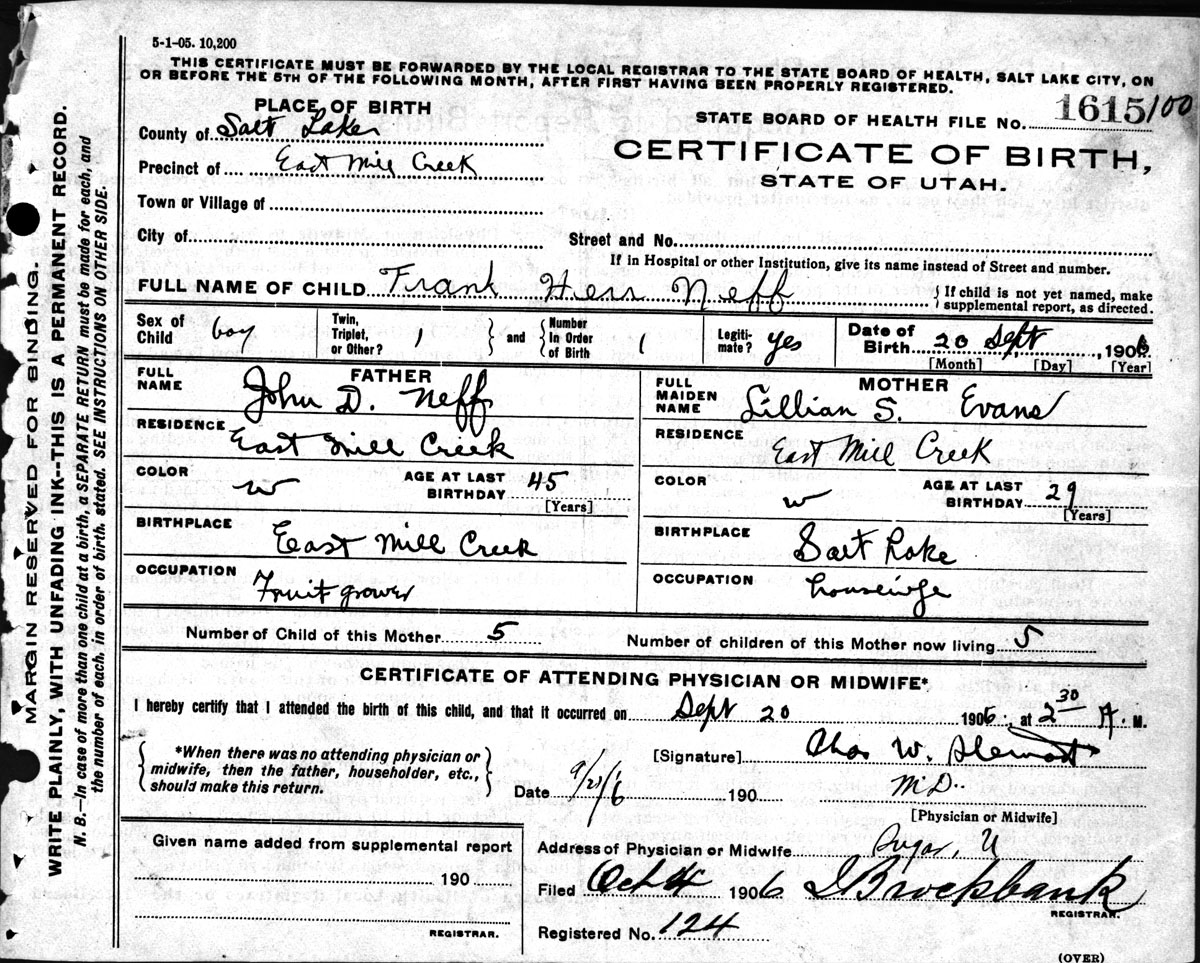 5-1-05. 10,200
THIS CERTIFICATE MUST BE FORWARDED BY THE LOCAL REGISTRAR TO THE STATE BOARD OF HEALTH, SALT LAKE CITY, ON
OR BEFORE THE 5TH OF THE FOLLOWING MONTH, AFTER FIRST HAVING BEEN PROPERLY REGISTERED.
PLACE OF BIRTH
STATE BOARD OF HEALTH FILE No. 1615/100
County of Salt Lake
CERTIFICATE OF BIRTH,
Precinct of East Mill Creek
STATE OF UTAH.
Town or Village of
City of
Street and No.
If in Hospital or other Institution, give its name instead of Street and number.
FULL NAME OF CHILD Frank Herr Neff
{ If child is not yet named, make
supplemental report, as directed.
Sex of Child boy Twin, Triplet, or Other? 1 } and { Number In Order of Birth 1 Legiti-mate? yes Date of Birth 20 Sept, 1906
[Month] [Day] [Year]
FATHER
FULL NAME John D. Neff
MOTHER
FULL MAIDEN NAME Lillian S. Evans
RESIDENCE East Mill Creek
RESIDENCE East Mill Creek
COLOR w AGE AT LAST BIRTHDAY 45 [Years]
COLOR w AGE AT LAST BIRTHDAY 29 [Years]
BIRTHPLACE East Mill Creek
BIRTHPLACE Salt Lake
OCCUPATION Fruit grower
OCCUPATION housewife
Number of Child of this Mother 5 Number of children of this Mother now living 5
CERTIFICATE OF ATTENDING PHYSICIAN OR MIDWIFE*
I hereby certify that I attended the birth of this child, and that it occurred on Sept 20 1906, at 2 30 A. M.
{ *When there was no attending physician or
midwife, then the father, householder, etc.,
should make this return. }
[Signature] Chas W. Stewart
Date 9/21/6 190 M.D.
[Physician or Midwife]
Given name added from supplemental report
190
REGISTRAR.
Address of Physician or Midwife Sugar, U
Filed Oct 4 1906 Brockbank
REGISTRAR.
Registered No. 124
(OVER)
MARGIN RESERVED FOR BINDING.
WRITE PLAINLY, WITH UNFADING INK--THIS IS A PERMANENT RECORD.
N. B.—In case of more than one child at a birth, a SEPARATE RETURN must be made for each, and
the number of each, in order of birth, stated. SEE INSTRUCTIONS ON OTHER SIDE.